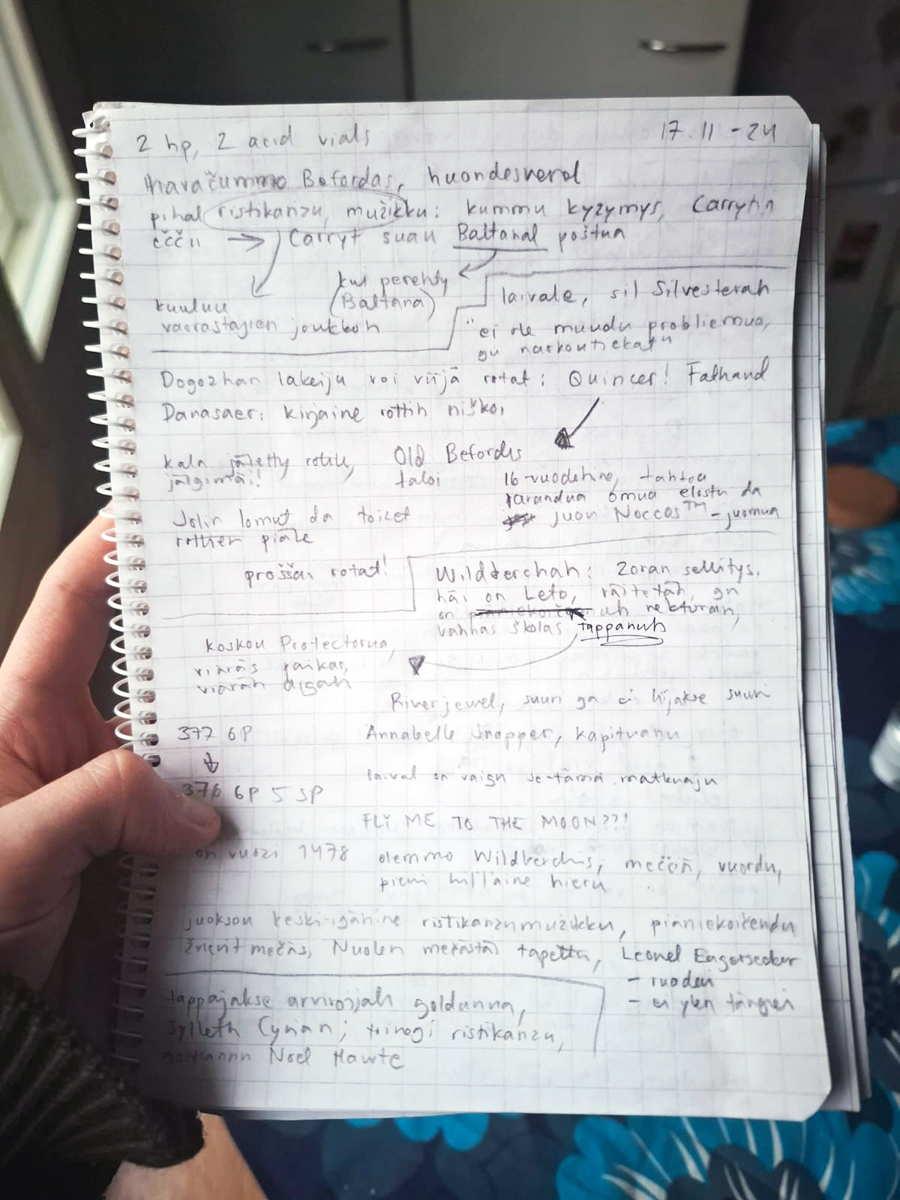 2 hp, 2 acid vials
17.11 -24
havačummo Befordas, huondesverol
pihal ristikanzu, mužikku: kummu kyzymys, Carrytin
ččči → Carryt suau Baltanal poštua
kui perehty
(Baltana)
kuuluu
varrastajien joukkoh
laivale, sil Silvesterah
"ei ole muudu probliemua,
gu narkoutiekat"
Dogozhan lakeiju voi viijä rotat: Quincer! Fathand
Danasaer: kirjaine rottih niškoi
kala jätetty rotile,
jälgimäi!
Old Befordis
taloi
16-vuodehine, tahtoa
parandua omua elostu da
juon Noccos™-juomua
Jolin lomut da toizet
rottien piäle
proššai rotat!
Wildderchah: Zoran sellitys,
häi on Leto, räštetäh, gu
on uh nekturan,
vahnas školas tappanuh
koskou Protectorua,
viäräs paikas,
viäräh aigah
Riverjewel, suuri ga ei liijakse suuri
377 GP
Annabelle Snapper, kapituanu
laival on vaigu se tämä matkuaju
376 GP 5 SP
FLY ME TO THE MOON???!
on vuozi 1478
olemmo Wildberchis, meččii, vuordu,
pieni hil'l'aine hieru
juoksou keski-igähine ristikanzumužikku, pianiekoičendu
žiivatit mečäs, Nuolen mečästäi tapettu, Leonel Eagerseeker
- ruaden
- ei ylen tängei
tappajakse arvivojah goldunnu,
Sylleth Cynan; toinegi ristikanzu,
Noel Hawte